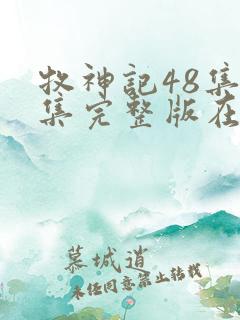 牧神记48集
集完整版在
慕城逍
未经同意禁止转载